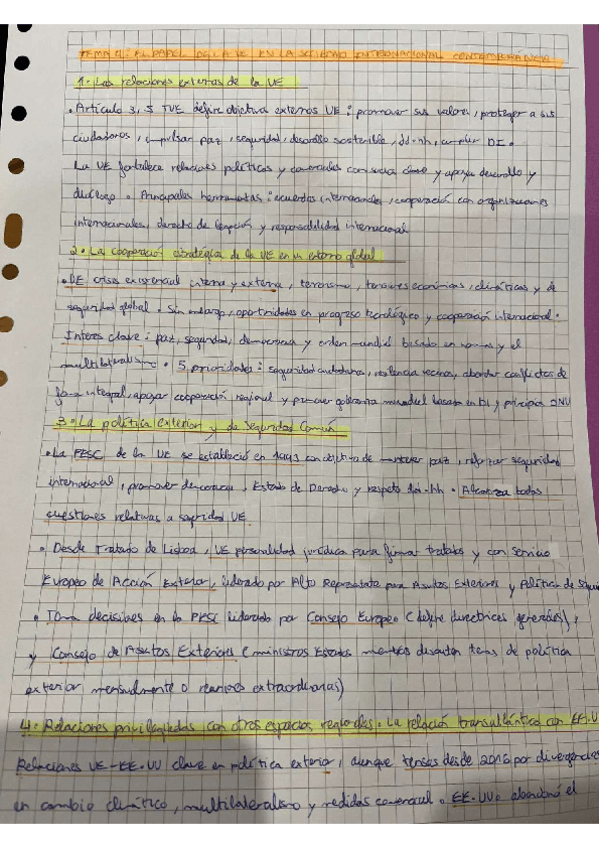 TEMA 9: EL PAPEL DE LA UE EN LA SOCIEDAD INTERNACIONAL CONTEMPORÁNEA
1. Las relaciones externas de la UE
• Artículo 3,5 TUE define objetivos externos UE: promover sus valores, proteger a sus
ciudadanos, impulsar paz, seguridad, desarrollo sostenible, dd.hh, cumplir DI.
La UE fortalece relaciones políticas y comerciales con socios clave y apoya desarrollo y
diálogo. Principales herramientas: acuerdos internacionales, cooperación con organizaciones
internacionales, derecho de legación y responsabilidad internacional
2. La cooperación estratégica de la UE en un entorno global
• DE crisis existencial interna y externa, terrorismo, tensiones económicas, climáticas y de
seguridad global. Sin embargo, oportunidades en progreso tecnológico y cooperación internacional.
Interés clave: paz, seguridad, democracia y orden mundial basado en normas y el
multilateralismo. 5 prioridades: seguridad ciudadana, resiliencia vecinos, abordar conflictos de
forma integral, apoyar cooperación regional y promover gobernanza mundial basada en DI y principios ONU
3. La política exterior y de Seguridad Común
• La PESC de la UE se estableció en 1993 con objetivo de mantener paz, reforzar seguridad
internacional, promover democracia, Estado de Derecho y respeto dd.hh. Alcanza todas
cuestiones relativas a seguridad UE
• Desde Tratado de Lisboa, UE personalidad jurídica para firmar tratados y con Servicio
Europeo de Acción Exterior, liderado por Alto Representante para Asuntos Exteriores y Política de Segui
• Toma decisiones en la PESC liderado por Consejo Europeo (define directrices generales),
y Consejo de Asuntos Exteriores (ministros Estados miembros discuten temas de política
exterior mensualmente o reuniones extraordinarias)
4. Relaciones privilegiadas con otros espacios regionales. La relación transatlántica con EE.UU
Relaciones UE-EE.UU clave en política exterior, aunque tensas desde 2016 por divergencias
en cambio climático, multilateralismo y medidas comercial. EE.UU abandonó el